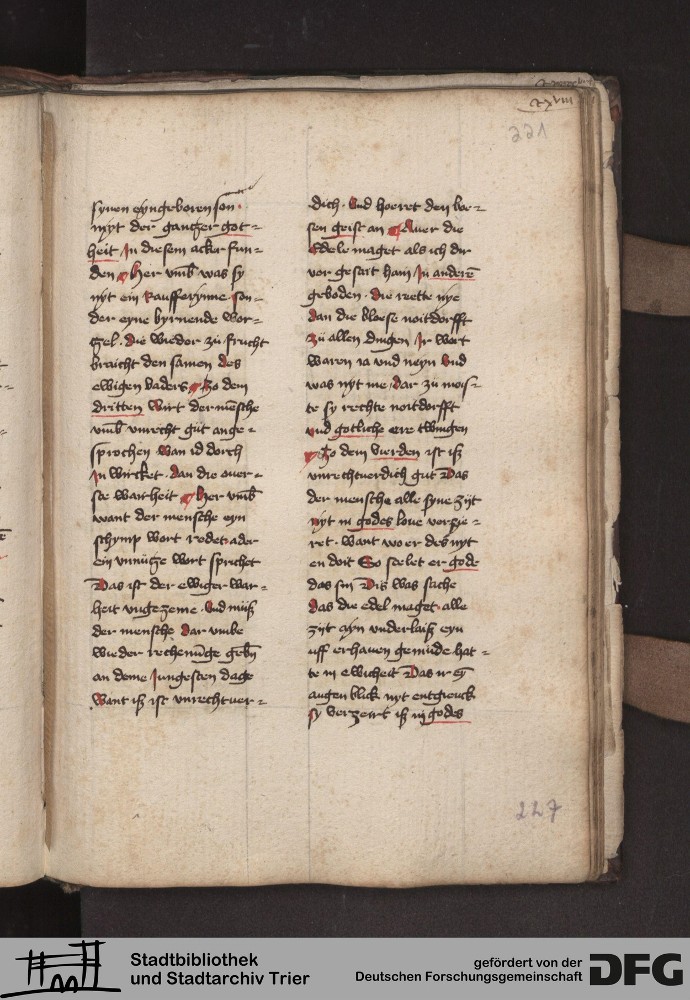 221
synen eyngeboren son
myt der gantzer got=
heit In diesem acker fun=
den Her vmb was sy
nyt ein kaufferynne son=
der eyne byrnende wor=
tzel die wieder zu frucht
braicht den samen des
ewigen vaders Zo dem
dritten Wirt der mensche
vmb vnrecht gut ange=
sprochen wan id dorch
In wircket dan die ouer=
ste warheit Her vmb
want der mensche eyn
schymp wort redet ader
ein vnnutze wort sprichet
Das ist der ewiger war=
heit vngezeme Vnd muß
der mensche dar vmbe
wieder rechenunge
an deme Jungesten dage
Want iß ist vnrechtuer=
dich Vnd hoeret den boe=
sen geist an Auer die
Edele maget als ich dir
vor gesait hain In andere
geboden die rette nye
dan die bloesse noitdorfft
Zu allen dingen Ir wort
waren ia vnd neyn Vnd
was nyt me dar zu mois=
te sy rechte noitdorfft
vnd gotliche ere twingen
Zo dem vierden ist iß
vnrechtuerdich gut Das
der mensche alle syne zijt
nyt in godes loue verzie=
ret want wo er des nyt
en doit So stelet er gode
das sin Dis was sache
das die edel maget alle
zijt ayn vnderlaiß eyn
vff erhauen gemude hat=
te in ewicheit Das ir
augen blick nyt entgienck
sy verzeirt iß in godes
227
Stadtbibliothek
und Stadtarchiv Trier
gefördert von der
Deutschen Forschungsgemeinschaft
DFG